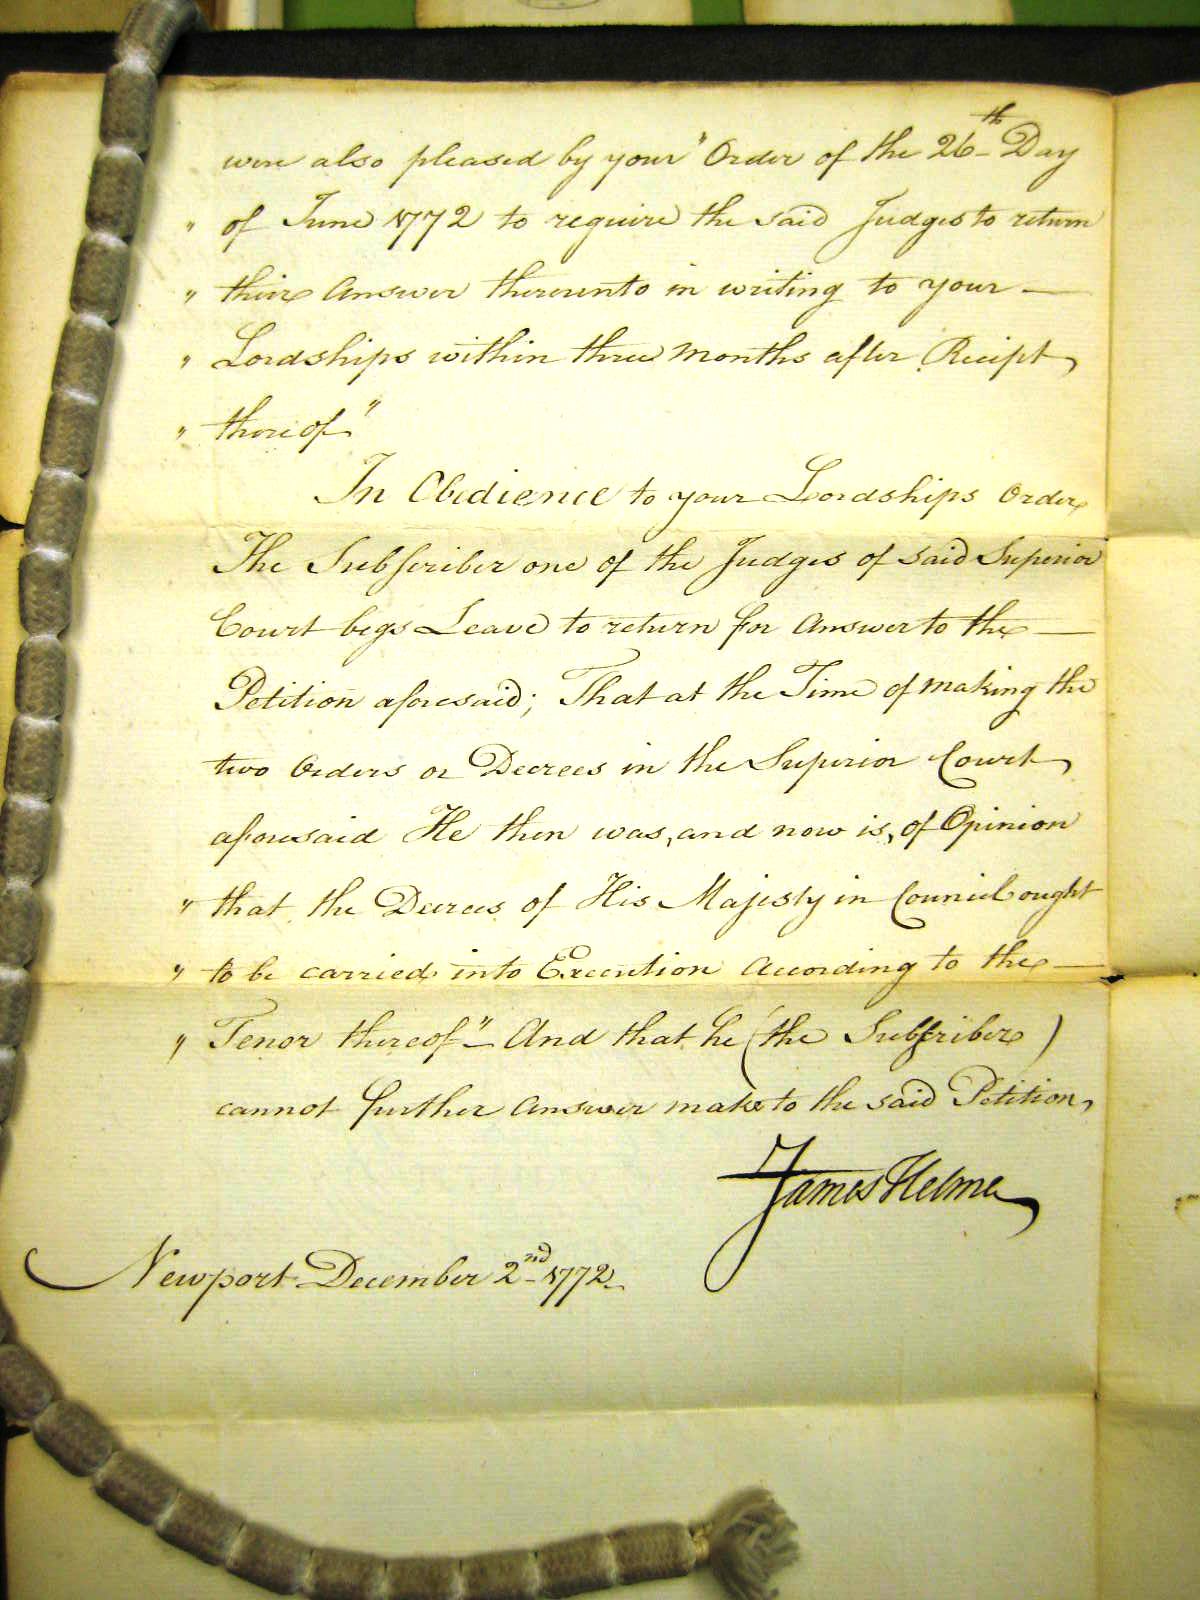 were also pleased by your "Order of the 26th Day
" of June 1772 to require the said Judges to return
" their Answer thereunto in writing to your —
" Lordships within three Months after Receipt
" thereof"
In Obedience to your Lordships Order
The Subscriber one of the Judges of said Superior
Court begs Leave to return for Answer to the —
Petition aforesaid; That at the Time of making the
two Orders or Decrees in the Superior Court
aforesaid He then was, and now is, of Opinion
" that the Decrees of His Majesty in Council ought
" to be carried into Execution According to the —
" Tenor thereof" — And that he (the Subscriber)
cannot further Answer make to the said Petition,
James Helme
Newport December 2nd 1772